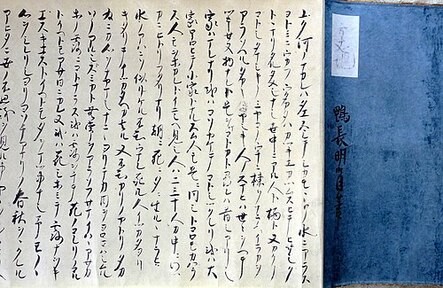 行ク河ノナカレハ絶スシテシカモモトノ水ニアラス
ヨトミニウカフウタカタハカツキエカツムスヒテヒサシク
トヽマリタルタメシナシ世中ニアル人ト栖ト又カクノ
コトシタマシキノミヤコノウチニ棟ヲナラヘイラカヲ
アラソヘルタカキイヤシキ人ノスマヒハ世々ヲヘテ
ツキセヌ物ナレト是ヲマコトカト尋レハ昔シアリシ
家ハマレナリ或ハコソヤケテコトシツクレリ或ハ大
家ホロヒテ小家トナルスム人モ是ニ同シトコロモカハラ
ス人モヲホカレトイニシヘ見シ人ハ二三十人カ中ニワツカニ
ヒトリフタリナリ朝ニ死ニ夕ニ生ルヽナラヒタヽ
水ノアハニソ似リケル不知ウマレ死ル人イツカタヨリ
キタリテイツカタヘカ去ル又不知カリノヤトリタカ
為ニカ心ヲナヤマシナニニヨリテカ目ヲヨロコハシムル
ソノアルシトスミカト無常ヲアラソフサマイハヽアサカ
ホノ露ニコトナラス或ハ露ヲチテ花ノコレリノコル
トイヘトモアサ日ニカレヌ或ハ花シホミテ露ナヲキ
エスキエストイヘトモ夕ヲマツ事ナシ予モノヽ
心ヲシレリシヨリヨソチアマリノ春秋ヲヽクレル
アヒタニ世ノ不思議ヲ見ル事
鴨長明自筆